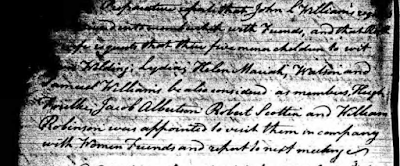 Preparative reports that John L Williams req
unde into membership with Friends, and that Ruth
requests that their five minor children to wit
Wilding, Lydia, Helen Mariah, Watson and
Samuel Williams be also considered as members, Hugh
Jacob Albertson Robert Scotten and William
Robinson was appointed to visit them in company
with Women Friends and report to next meeting